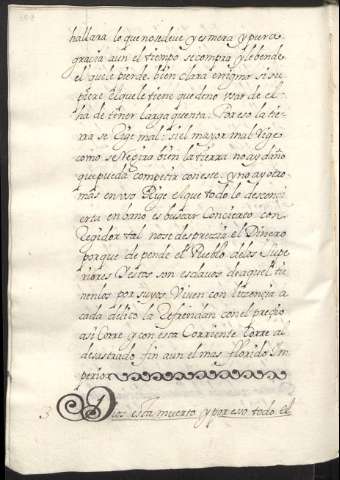 hallara lo que nos deve y es mera y pura
gracia aun el tiempo se compra y le bende
el que le pierde. bien clara enigma si su
piere el que le tiene que dino usar de el
ha de tener larga quenta. Por eso la tie
rra se Rige mal: si el mayor mal Rige
como se Regira bien la tierra no ay daño
que pueda competir con este. y no ay otro
mas en uso Rige el que todo lo desconci
erta en vano es buscar Concierto con
Regidor tal no se desprezia el Dinero
porque de pende el Pueblo de los Supe
riores Y estos son esclavos de aquel tie
nenlos por suyos. Viven con lizencia a
cada delito la Refrendan con el prezio
asi Corre y con esta Corriente Corre al
desastrado fin aun el mas florido Im
perio
3 Dios esta muerto y por eso todo el